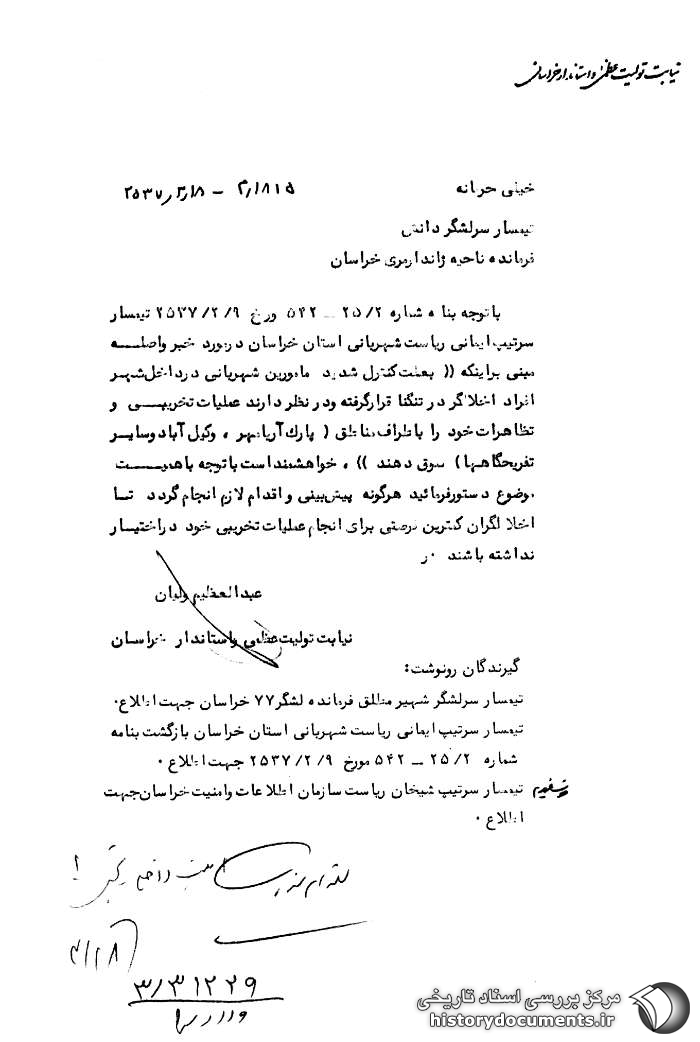 نیابت تولیت عظمی و استاندار خراسان
خیلی محرمانه
تیمسار سرلشگر دانش
فرمانده ناحیه ژاندارمری خراسان
با توجه بنامه شماره ۲۵/۲ ــ ۵۴۲ مورخ ۲۵۳۷/۲/۹ تیمسار
سرتیپ ایمانی ریاست شهربانی استان خراسان در مورد خبر واصلـــه
مبنی براینکه (( بعلت کنترل شدید مامورین شهربانی در داخل شهر
افراد اخلالگر در تنگنا قرار گرفته و در نظر دارند عملیات تخریبـــی و
تظاهرات خود را باطراف مناطق ( پارک آریامهر ، وکیل آباد و سایـر
تفریحگاهها ) سوق دهند )) ، خواهشمند است با توجه باهمیـــت
موضوع دستور فرمائید هرگونه پیش‌بینی و اقدام لازم انجام گردد تــا
اخلالگران کمترین فرصتی برای انجام عملیات تخریبی خود در اختیـار
نداشته باشند ۰ر
عبدالعظیم ولیان
نیابت تولیت عظمی و استاندار خراسان
گیرندگان رونوشت:
تیمسار سرلشگر شهیر مطلق فرمانده لشگر ۷۷ خراسان جهت اطلاع۰
تیمسار سرتیپ ایمانی ریاست شهربانی استان خراسان بازگشت بنامه
شماره ۲۵/۲ ــ ۵۴۲ مورخ ۲۵۳۷/۲/۹ جهت اطلاع ۰
تیمسار سرتیپ شیخان ریاست سازمان اطلاعات و امنیت خراسان جهت
اطلاع ۰
۳/۳۱۲۲۹
مرکز بررسی اسناد تاریخی
historydocuments.ir